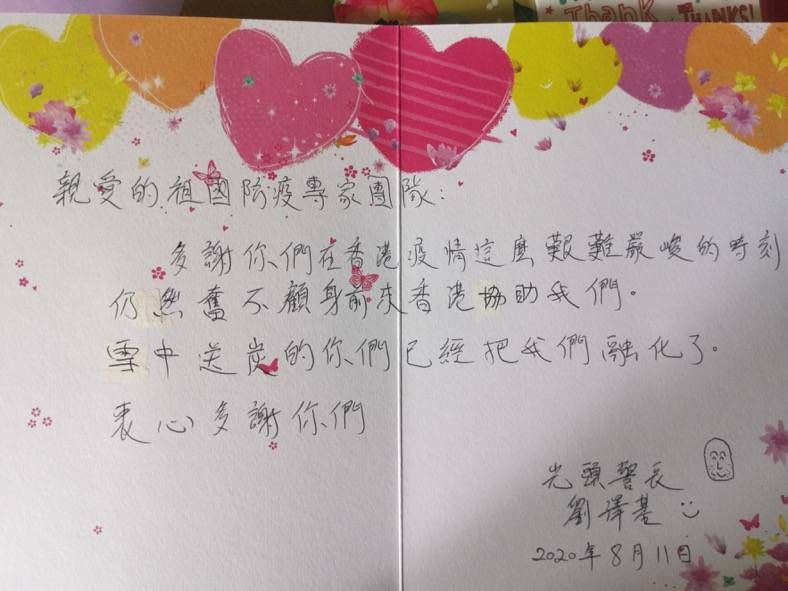 Thank
THANKS!
親愛的祖國防疫專家團隊:
多謝你們在香港疫情這麼艱難嚴峻的時刻
仍然奮不顧身前來香港協助我們。
雪中送炭的你們已經把我們融化了。
衷心多謝你們
光頭警長
劉澤基
2020年8月11日